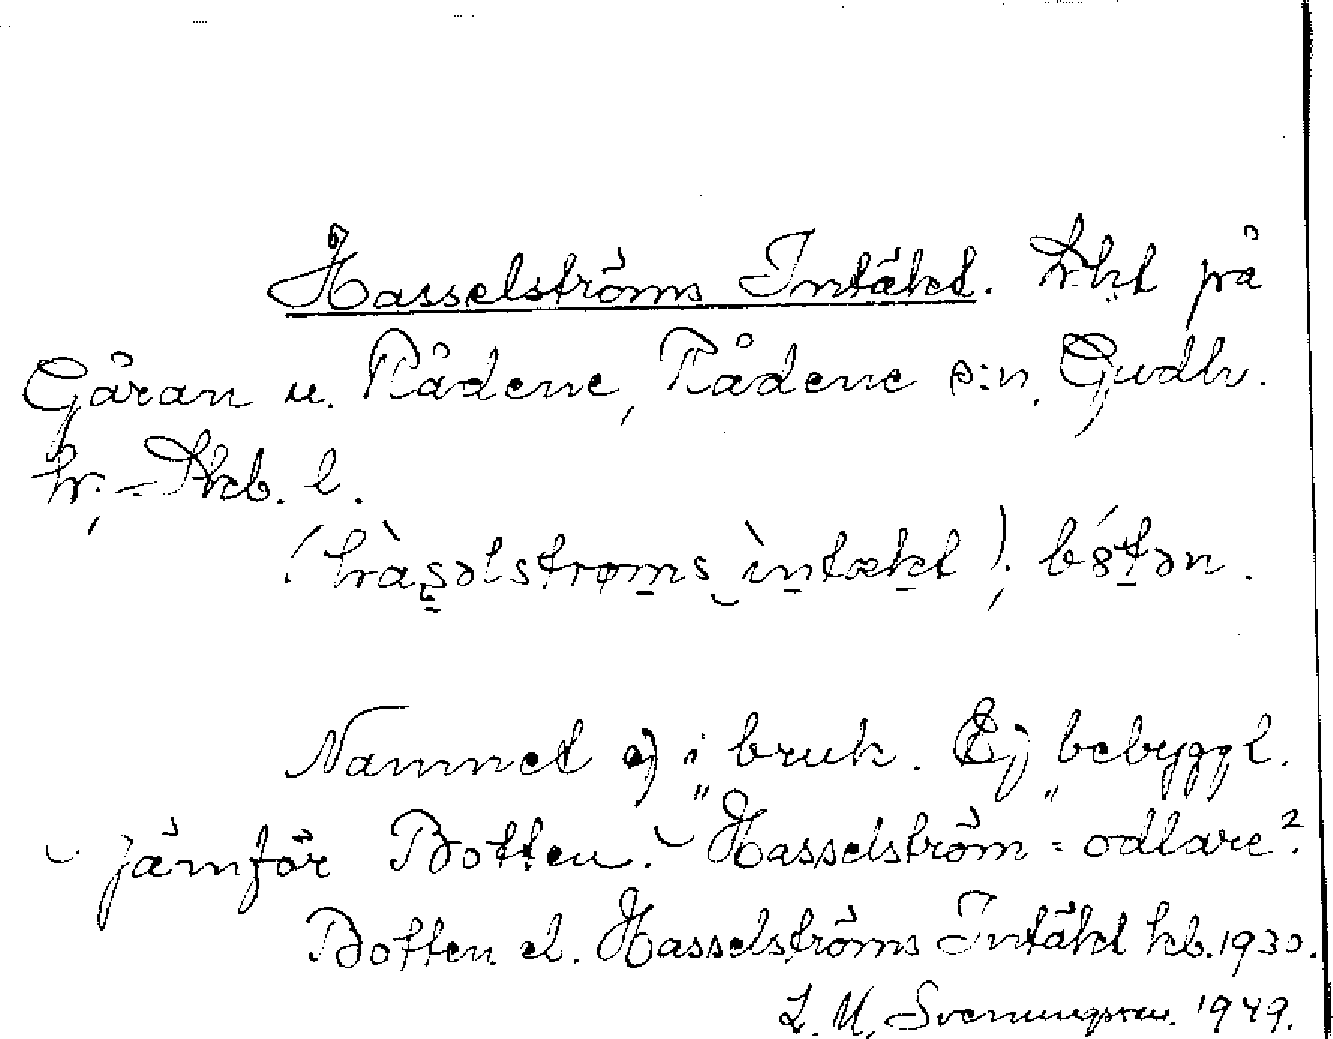 Hasselströms Intäkt. trkt på
Gåran u. Rådene, Rådene s:n, Gudh.
hr, Skb. l.
(hàsəlstrøms ìntækt); bótən.
Namnet ej i bruk. Ej bebyggt.
jämför Botten. "Hasselström" = odlare?
Botten el. Hasselströms Intäkt kb. 1930.
L. M. Svenungsson. 1949.